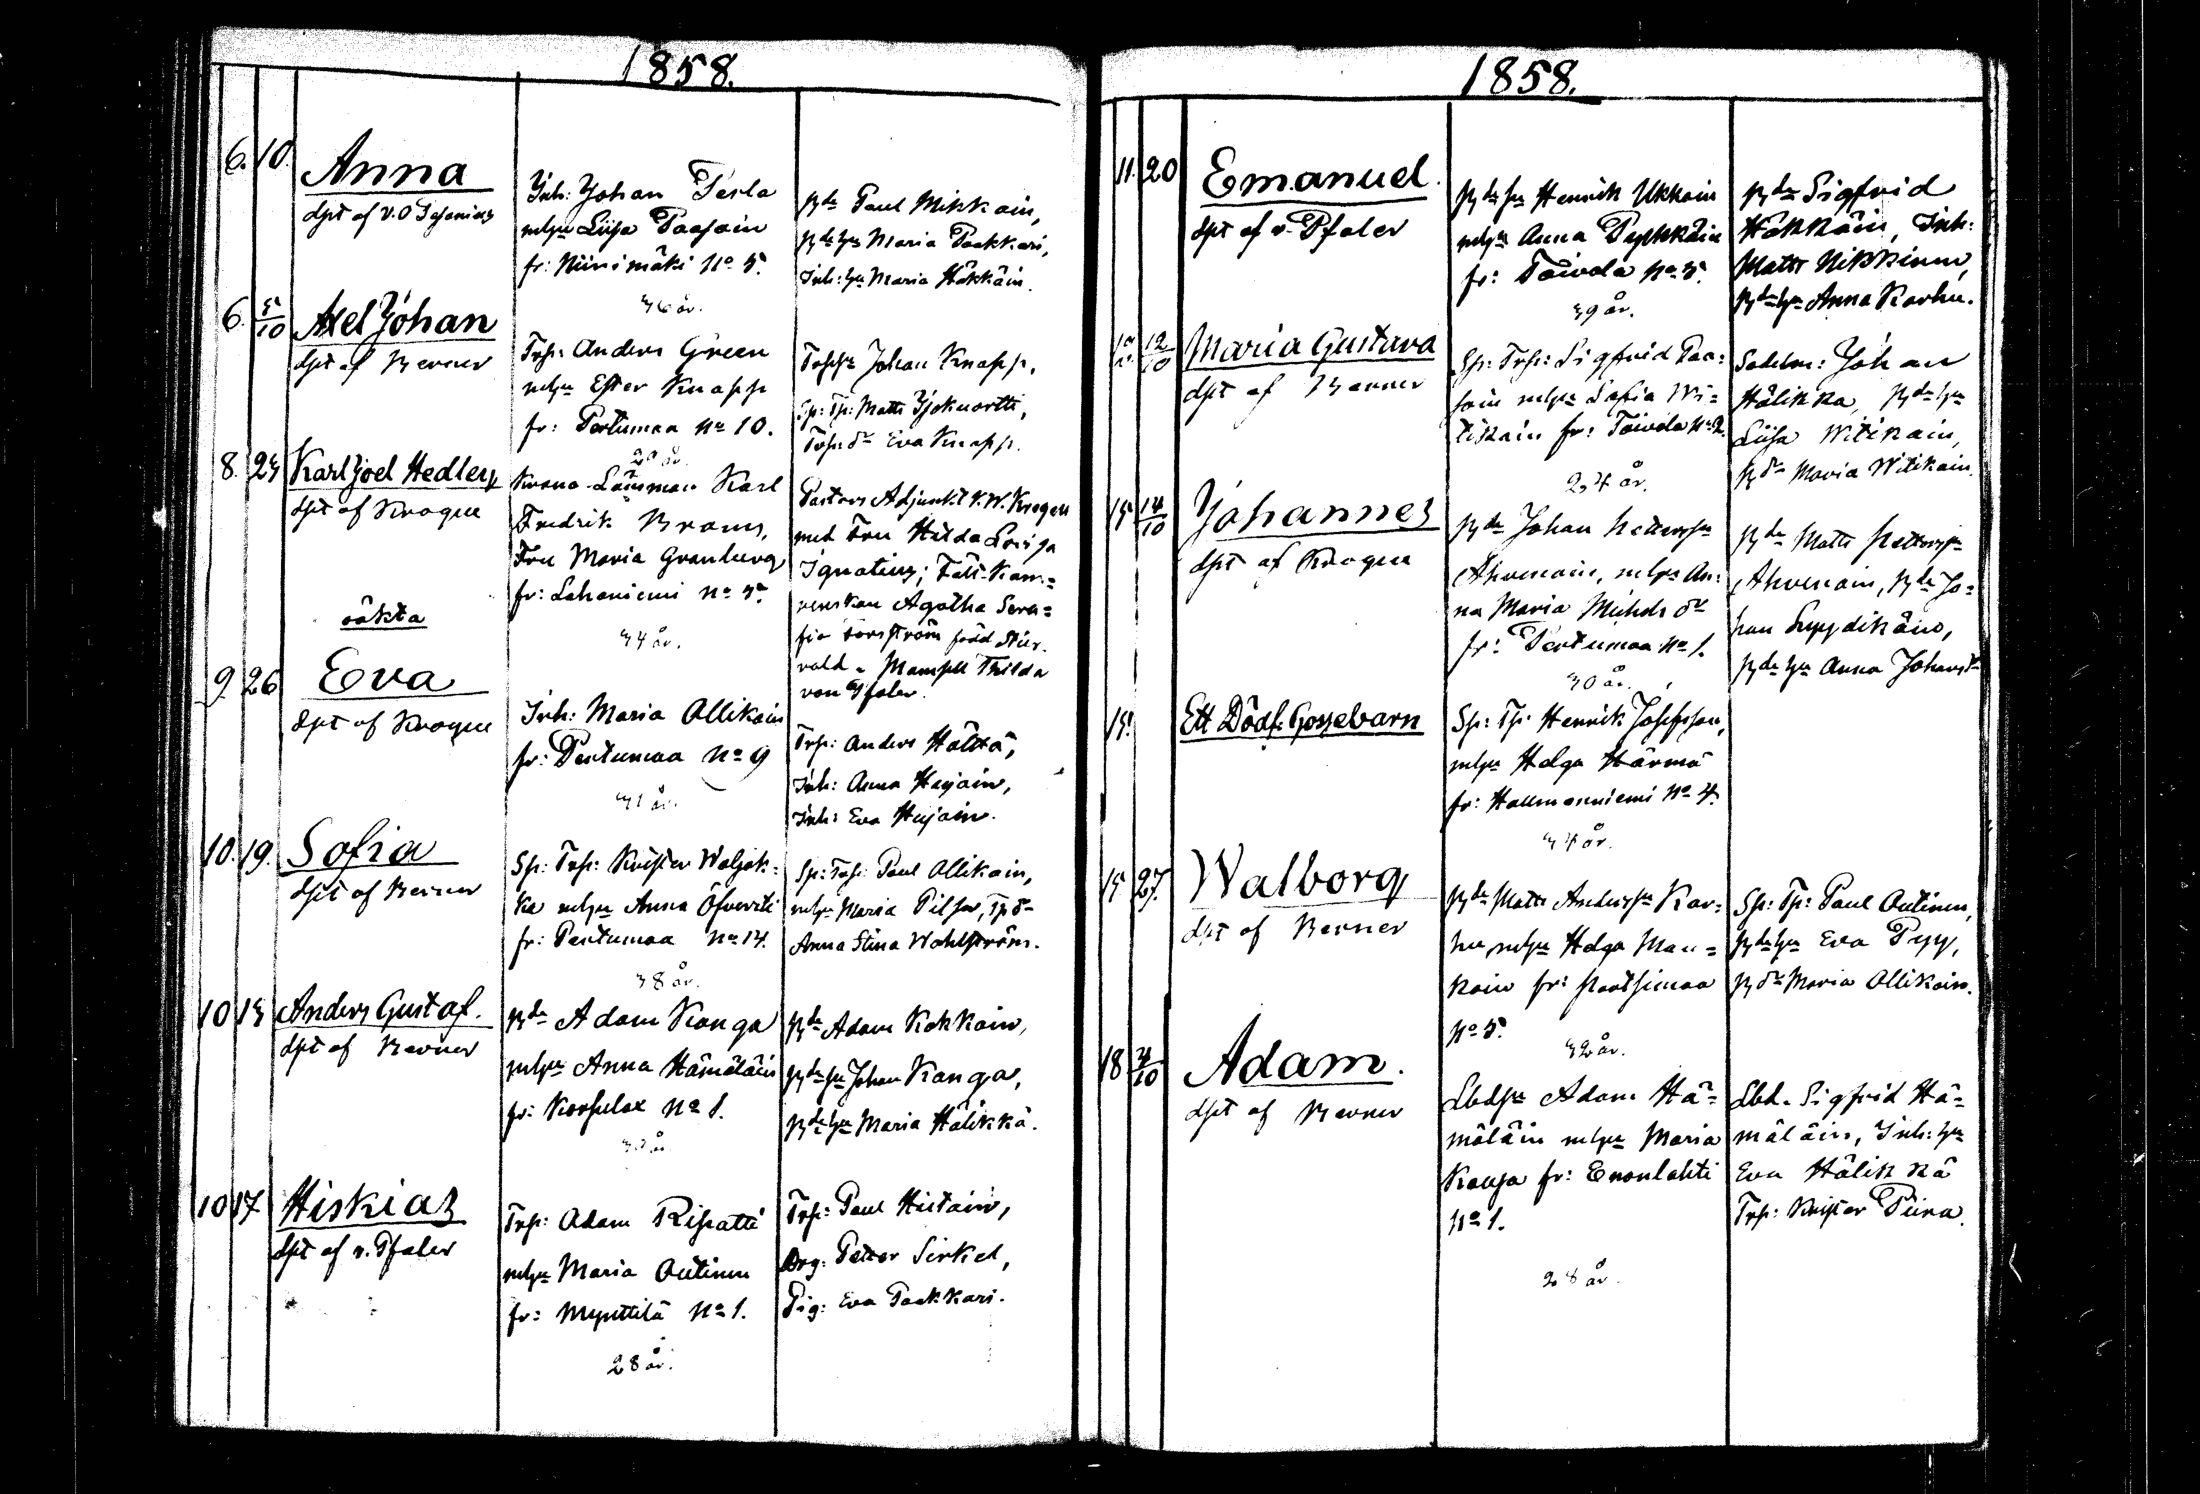 1858.
6. 10. Anna
dpt af v. O Tesenius
Inh: Johan Tesla
mhu Liisa Paasoin
fr: Niinimäki No 5.
36 år.
Bde Paul Mikkoin,
Bde hu Maria Paakkari,
Inh: hu Maria Häkkäin.
6. 5/10 Axel Johan
dpt af Berner
Trp: Anders Green
mhu Ester Knapp
fr: Pertumaa No 10.
29 år.
Johan Knapp,
Sp: Tp: Matts
Trp: dr Eva Knapp.
8. 23 Karl Joel Hedley
dpt af Krogeu
Krono-Länsman Karl
Fredrik Brams,
Fru Maria Granberg
fr: Lahoniemi No 5.
34 år.
Pastors Adjunkt K. W. Krogeu
med Fru Hilda Lovisa
Ignatius; Fält-Kam=
rerskan Agatha Sera=
fia Forsström född Stür-
vald - Mamsell Thilda
von Pfaler.
oäkta
9. 26 Eva
dpt af Krogeu
Inh: Maria Ollikain
fr: Pertumaa No 9
31 år.
Trp: Anders Hölttä,
Inh: Anna Hayain,
Inh: Eva Hujain.
10. 19. Sofia
dpt af Berner
Sp: Trp: Krister Waljak=
ka mhu Anna Öfversti
fr: Pertumaa No 14.
38 år.
Sp: Trp: Paul Ollikain,
mhu Maria Pilsar, Tp dr
Anna Stina Wahlström.
10 13 Anders Gustaf.
dpt af Berner
Bde Adam Kanga
mhu Anna Hämäläin
fr: Korpulax No 1.
Bde Adam Kokkoin,
Bde Johan Kanga,
Bde hu Maria Hälikkä.
10 17 Hiskias
dpt af v. Pfaler
Trp: Adam Ripatti
mhu Maria Outinen
fr: Mynttilä No 1.
28 år.
Trp: Paul Hietain,
Drg: Petter Sirkel,
Pig: Eva Paakkari.
1858.
11. 20 Emanuel.
dpt af v. Pfaler
Bde Henrik Ukkoin
mhu Anna Pylkkäin
fr: Toivola No 5.
39 år.
Bde Sigfrid
Häkkäin, Inh:
Matts Nikkinen,
Bde hu Anna Karhu.
12/10 Maria Gustava
dpt af Berner
Sp: Trp: Sigfrid Paa=
soin mhu Sofia Wi=
tikain fr: Toivola No 2.
24 år.
Soldm: Johan
Hälikka, Bde hu
Liisa Witikain,
B dr Maria Witikain.
15 14/10 Johannes
dpt af Krogeu
Bde Johan Petterss
Ahvenain, mhu An=
na Maria Michels dr
fr: Pertumaa No 1.
30 år.
Bde Matts Petterss
Ahvenain, Bde Jo=
han Luydikäin,
Bde hu Anna Johansdr
15. Ett Dödf. Gossebarn
Sp: Tp: Henrik Josefsson,
mhu Helga Härmä
fr: Hallmanniemi No 4.
34 år.
15 27. Walborg
dpt af Berner
Bde Matts Anderss Kar=
hu, mhu Helga Man=
koin fr: Paatsimaa
No 5.
32 år.
Sp: Tp: Paul Outinen,
Bde hu Eva Pyy,
B dr Maria Ollikain.
18 4/10 Adam.
dpt af Berner
Lbdsn Adam Hä=
mäläin mhu Maria
Kauja fr: Enonlahti
No 1.
28 år.
Lbd. Sigfrid Hä=
mäläin, Inh: hu
Eva Hälikkä
Trp: Krister Piira.